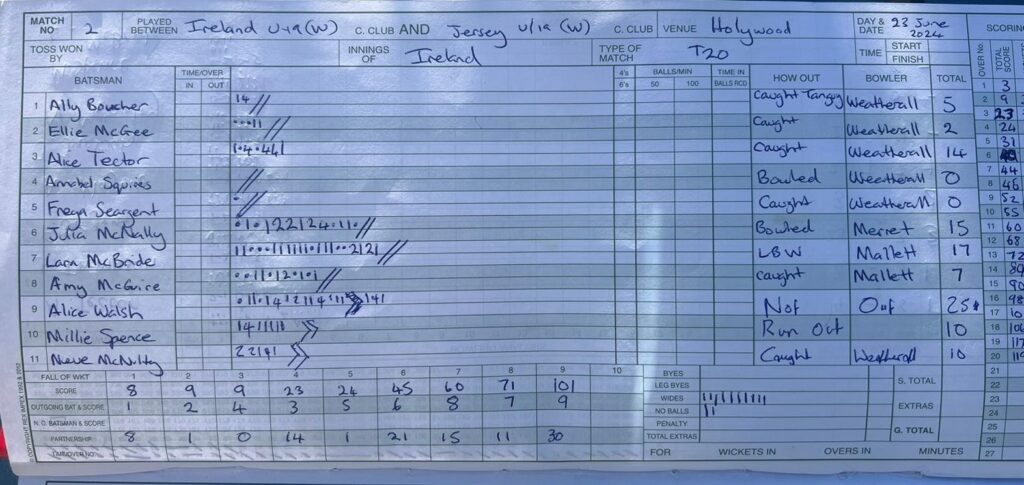 MATCH NO 2 PLAYED BETWEEN Ireland U-19 (W) C. CLUB AND Jersey U/19 (W) C. CLUB VENUE Holywood DAY & DATE 23 June 2024
TOSS WON BY INNINGS OF Ireland TYPE OF MATCH T20 TIME START FINISH
BATSMAN TIME/OVER IN OUT 4's 6's BALLS/MIN 50 100 TIME IN BALLS RCD HOW OUT BOWLER TOTAL
1 Ally Boucher 14 // Caught Tanguy Weatherall 5
2 Ellie McGee ···11 // Caught Weatherall 2
3 Alice Tector 1·4·441 Caught Weatherall 14
4 Annabel Squires // Bowled Weatherall 0
5 Freya Seargent · // Caught Weatherall 0
6 Julia McNally Bowled Merret 15
7 Lara McBride LBW Mallett 17
8 Amy McGuire ··11·12·1·1 // Caught Mallett 7
9 Alice Walsh Not Out 25*
10 Millie Spence 141111 Run Out 10
11 Nieve McNulty 22141 Caught Weatherall 10
FALL OF WKT 1 2 3 4 5 6 7 8 9 10
SCORE 8 9 9 23 24 45 60 71 101
OUTGOING BAT & SCORE 1 2 4 3 5 6 8 7 9
N. O. BATSMAN & SCORE
PARTNERSHIP 8 1 0 14 1 21 15 11 30
TIME/OVER NO.
BYES
LEG BYES
WIDES
NO BALLS 11
PENALTY
TOTAL EXTRAS
S. TOTAL
EXTRAS
G. TOTAL
FOR WICKETS IN OVERS IN MINUTES
SCORING
OVER No. TOTAL SCORE
1 3
2 9
3 23
4 24
5 31
6
7 44
8
9 52
10 55
11 60
12 68
13 72
14
15 90
16 98
17
18
19
20
21
22
23
24
25
26
27
© COPYRIGHT REX IMPEX